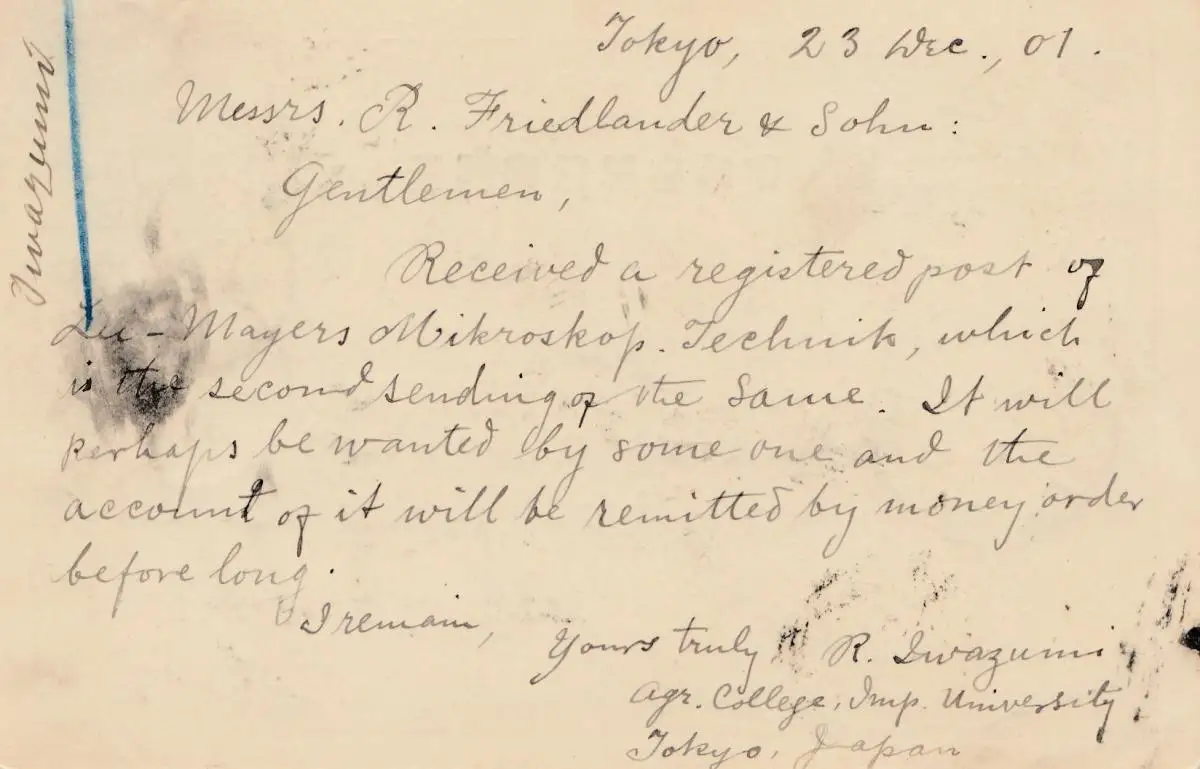 Tokyo, 23 Dec., 01.
Messrs. R. Friedlander & Sohn:
Gentlemen,
Received a registered post of
Lee-Mayers Mikroskop. Technik, which
is the second sending of the same. It will
perhaps be wanted by some one and the
account of it will be remitted by money order
before long.
I remain,
Yours truly R. Iwazumi
Agr. College, Imp. University
Tokyo, Japan
Iwazumi